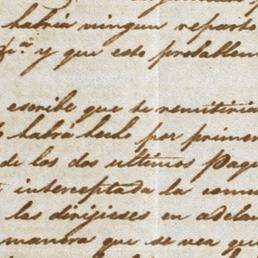 habia ningun reparto
y que esto probablem
escribe que te remitiria
habra hecho por primer
de los dos ultimos Paque
interceptada la comu
las dirijieses en adelan
manera que se vea que